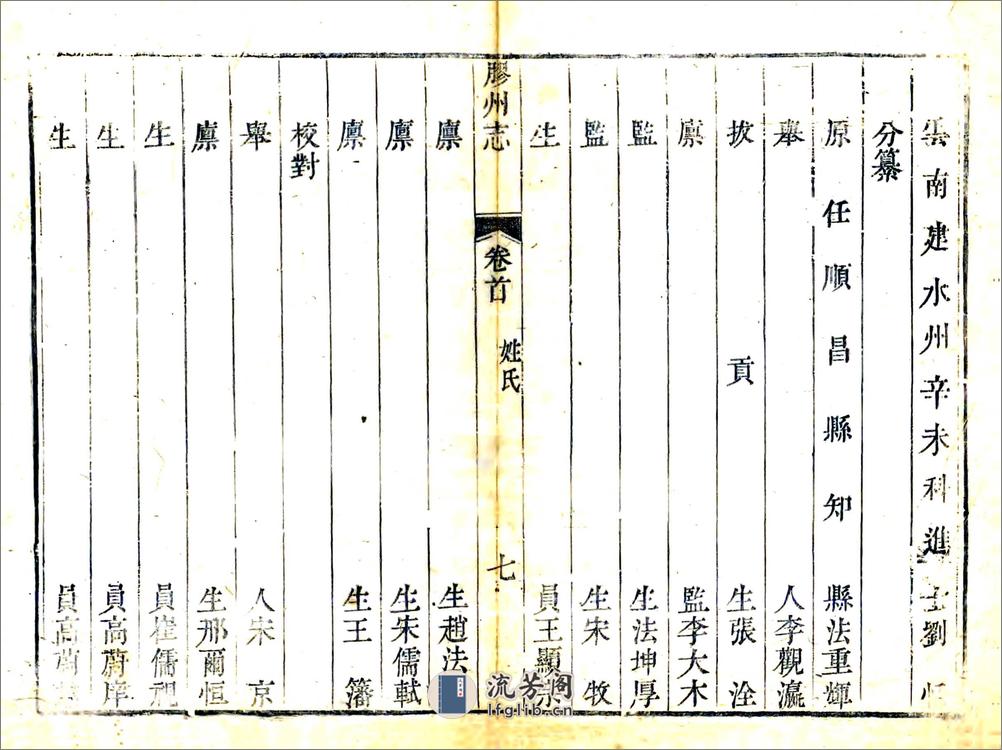 雲南建水州辛未科進士劉
分纂
原任順昌縣知縣法重輝
舉人李觀瀛
拔貢生張淦
廩監李大木
監生法坤厚
監生宋牧
生員王顯宗
膠州志 卷首 姓氏 七
廩生趙法
廩生宋儒軾
廩生王籓
校對
舉人宋京
廩生邢爾恒
生員崔儒視
生員高蔚岸
生員高蔚
流芳阁
lfglib.cn